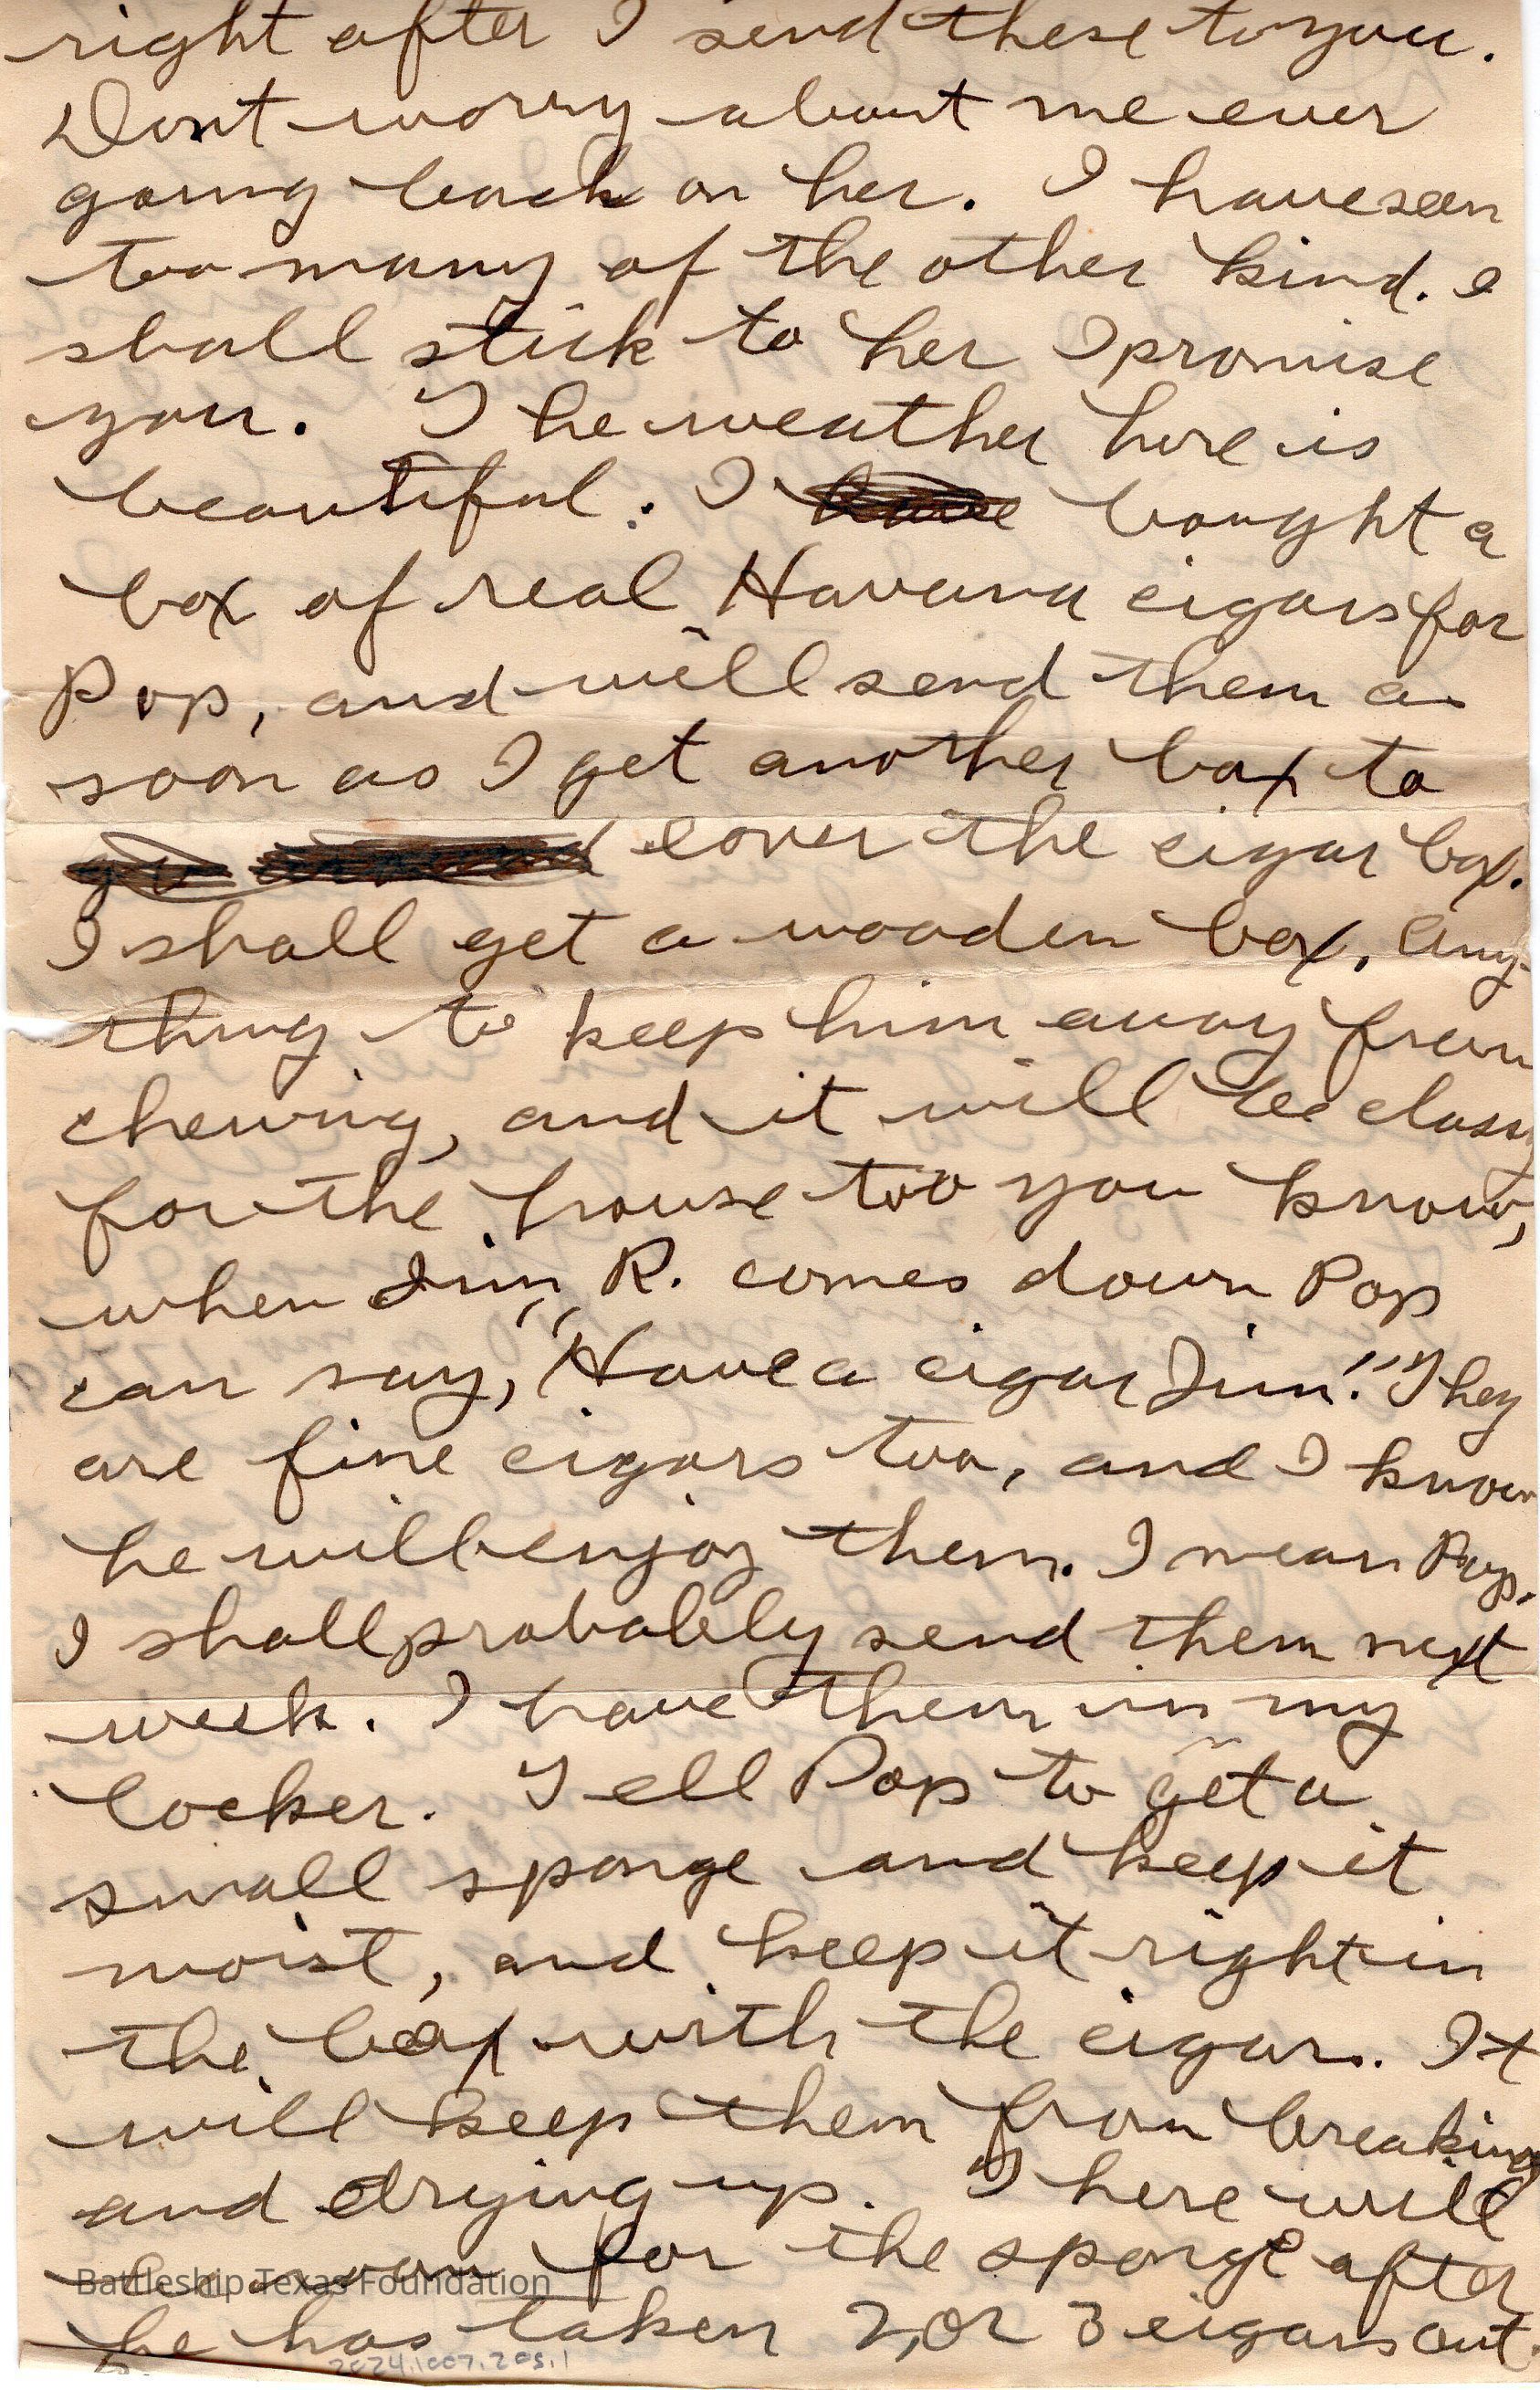 right after I send these to you.
Dont worry about me ever
going back on her. I have seen
too many of the other kind. I
shall stick to her I promise
you. The weather here is
beautiful. I have bought a
box of real Havana cigars for
Pop, and will send them as
soon as I get another box to
go around cover the cigar box.
I shall get a wooden box. Any-
thing to keep him away from
chewing, and it will be classy
for the house too you know,
when Jim R. comes down Pop
can say, "Have a cigar Jim!" They
are fine cigars too, and I know
he will enjoy them. I mean Pop.
I shall probably send them next
week. I have them in my
locker. Tell Pop to get a
small sponge and keep it
moist, and keep it right in
the box with the cigars. It
will keep them from breaking
and drying up. There will
be room for the sponge after
Battleship Texas Foundation
he has taken 2, or 3 cigars out.
2024.1007.205.1